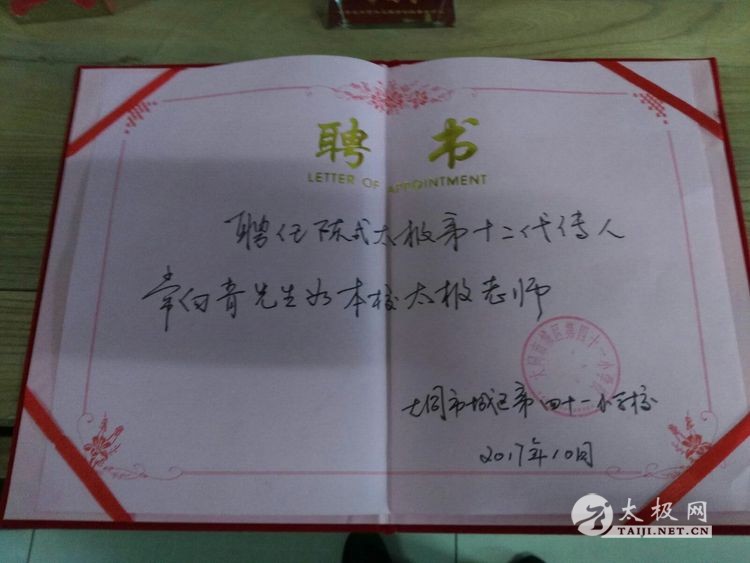 聘 书
LETTER OF APPOINTMENT
聘任陈式太极第十二代传人
常向青先生为本校太极老师
大同市城区第四十一小学校
大同市城区第四十一小学校
2017年10月
太极网
TAIJI.NET.CN